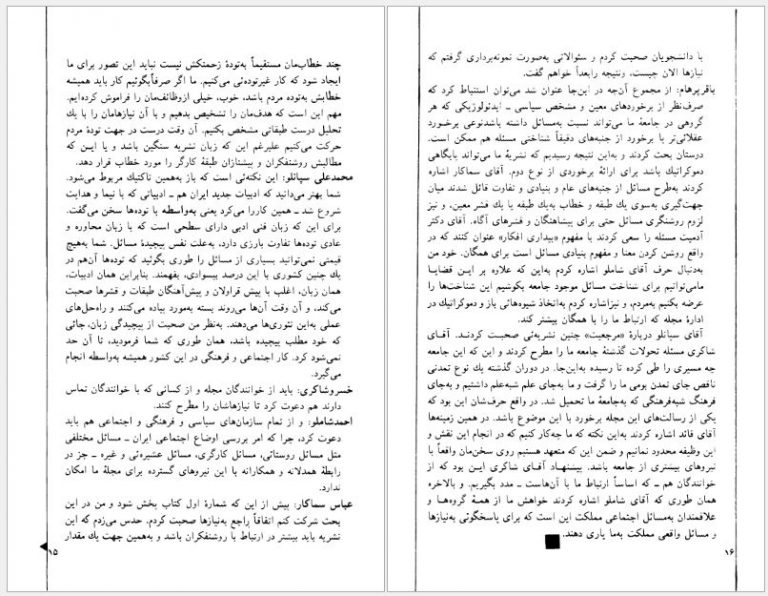 چند خطاب‌مان مستقیماً به‌تودهٔ زحمتکش نیست نباید این تصور برای ما
ایجاد شود که کار غیرتوده‌ئی می‌کنیم. ما اگر صرفاً بگوئیم کار باید همیشه
خطابش به‌توده مردم باشد، خوب، خیلی ازوظائف‌مان را فراموش کرده‌ایم.
مهم این است که هدف‌مان را تشخیص بدهیم و با آن نیازهامان را با یك
تحلیل درست طبقاتی مشخص بکنیم. آن وقت درست در جهت تودهٔ مردم
حرکت می‌کنیم علیرغم این که زبان نشریه سنگین باشد و یا ایـن که
مطالبش روشنفکران و پیشتازان طبقهٔ کارگر را مورد خطاب قرار دهد.
محمدعلی سپانلو: این نکته‌ئی است که باز به‌همین تاکتیك مربوط می‌شود.
شما بهتر می‌دانید که ادبیات جدید ایران هم ـ ادبیاتی که با نیما و هدایت
شروع شد ـ همین کاررا می‌کرد یعنی به‌واسطه با توده‌ها سخن می‌گفت.
برای این که زبان فنی ادبی دارای سطحی است که با زبان محاوره و
عادی توده‌ها تفاوت بارزی دارد، به‌علت نفس پیچیدهٔ مسائل. شما به‌هیچ
قیمتی نمی‌توانید بسیاری از مسائل را طوری بگوئید که توده‌ها آن‌هم در
یك چنین کشوری با این درصد بیسوادی، بفهمند. بنابراین همان ادبیات،
همان زبان، اغلب با پیش قراولان و پیش‌آهنگان طبقات و قشرها صحبت
می‌کند، و آن وقت آن‌ها می‌روند بسته به‌مورد پیاده می‌کنند و راه‌حل‌های
عملی به‌این تئوری‌ها می‌دهند. به‌نظر من صحبت از پیچیدگی زبان، جائی
که خود مطلب پیچیده باشد، همان طوری که شما فرمودید، تا آن حد
نمی‌شود کرد. کار اجتماعی و فرهنگی در این کشور همیشه به‌واسطه انجام
می‌گیرد.
خسروشاکری: باید از خوانندگان مجله و از کسانی که با خوانندگان تماس
دارند هم دعوت کرد تا نیازهاشان را مطرح کنند.
احمدشاملو: و از تمام سازمان‌های سیاسی و فرهنگی و اجتماعی هم باید
دعوت کرد، چرا که امر بررسی اوضاع اجتماعی ایران ـ مسائل مختلفی
مثل مسائل روستائی، مسائل کارگری، مسائل عشیره‌ئی و غیره ـ جز در
رابطهٔ همدلانه و همکارانه با این نیروهای گسترده برای مجلهٔ ما امکان
ندارد.
عباس سماکار: پیش از این که شمارهٔ اول کتاب پخش شود و من در این
بحث شرکت کنم اتفاقاً راجع به‌نیازها صحبت کردم. حدس می‌زدم که این
نشریه باید بیشتر در ارتباط با روشنفکران باشد و به‌همین جهت یك مقدار
۱۵
با دانشجویان صحبت کردم و سئوالاتی به‌صورت نمونه‌برداری گرفتم که
نیازها الان چیست، ونتیجه رابعداً خواهم گفت.
باقرپرهام: از مجموع آن‌چه در این‌جا عنوان شد می‌توان استنباط کرد که
صرف‌نظر از برخوردهای معین و مشخص سیاسی ـ ایدئولوژیکی که هر
گروهی در جامعهٔ ما می‌تواند نسبت به‌مسائل داشته باشدنوعی برخورد
عقلائی‌تر یا برخورد از جنبه‌های دقیقاً شناختی مسئله هم ممکن است.
درستان بحث کردند و به‌این نتیجه رسیدیم که نشریهٔ ما می‌تواند پایگاهی
دموکراتیك باشد برای ارائهٔ برخوردی از نوع دوم. آقای سماکار اشاره
کردند به‌طرح مسائل از جنبه‌های عام و بنیادی و تفاوت قائل شدند میان
جهت‌گیری به‌سوی یك طبقه و خطاب به‌یك طبقه یا یك قشر معین، و نیز
لزوم روشنگری مسائل حتی برای پیشاهنگان و قشرهای آگاه. آقای دکتر
آدمیت مسئله را سعی کردند با مفهوم «بیداری افکار» عنوان کنند که در
واقع روشن کردن معنا و مفهوم بنیادی مسائل است برای همگان. خود من
به‌دنبال حرف آقای شاملو اشاره کردم به‌این که علاوه بر ایـن قضایـا
مامی‌توانیم برای شناخت مسائل موجود جامعه بکوشیم این شناخت‌ها را
عرضه بکنیم به‌مردم، و نیزاشاره کردم به‌اتخاذ شیوه‌هائی باز و دموکراتیك در
ادارهٔ مجله که ارتباط ما را با همگان بیشتر کند.
آقای سپانلو دربارهٔ «مرجعیت» چنین نشریه‌ئی صحبـت کردنـد. آقـای
شاکری مسئله تحولات گذشتهٔ جامعه ما را مطرح کردند و این که این جامعه
چه مسیری را طی کرده تا رسیده به‌این‌جا. در دوران گذشته یك نوع تمدنی
ناقص جای تمدن بومی ما را گرفت و ما به‌جای علم شبه‌علم داشتیم و به‌جای
فرهنگ شبه‌فرهنگی که به‌جامعهٔ ما تحمیل شد. در واقع حرف‌شان این بود که
یکی از رسالت‌های این مجله برخورد با این موضوع باشد. در همین زمینه‌ها
آقای قائد اشاره کردند به‌این نکته که ما چه‌کار کنیم که در انجام این نقش و
این وظیفه محدود نمانیم و ضمن این که متعهد هستیم روی سخن‌مان واقعاً با
نیروهای بیشتری از جامعه باشد. پیشنهـاد آقـای شاکری ایـن بود که از
خوانندگان هم ـ که اساساً ارتباط ما با آن‌هاسـت ـ مدد بگیریم. و بالاخره
همان طوری که آقای شاملو اشاره کردند خواهش ما از همـهٔ گروه‌هـا و
علاقمندان به‌مسائل اجتماعی مملکت این است که برای پاسخگوئی به‌نیازها
و مسائل واقعی مملکت به‌ما یاری دهند.
۱۶